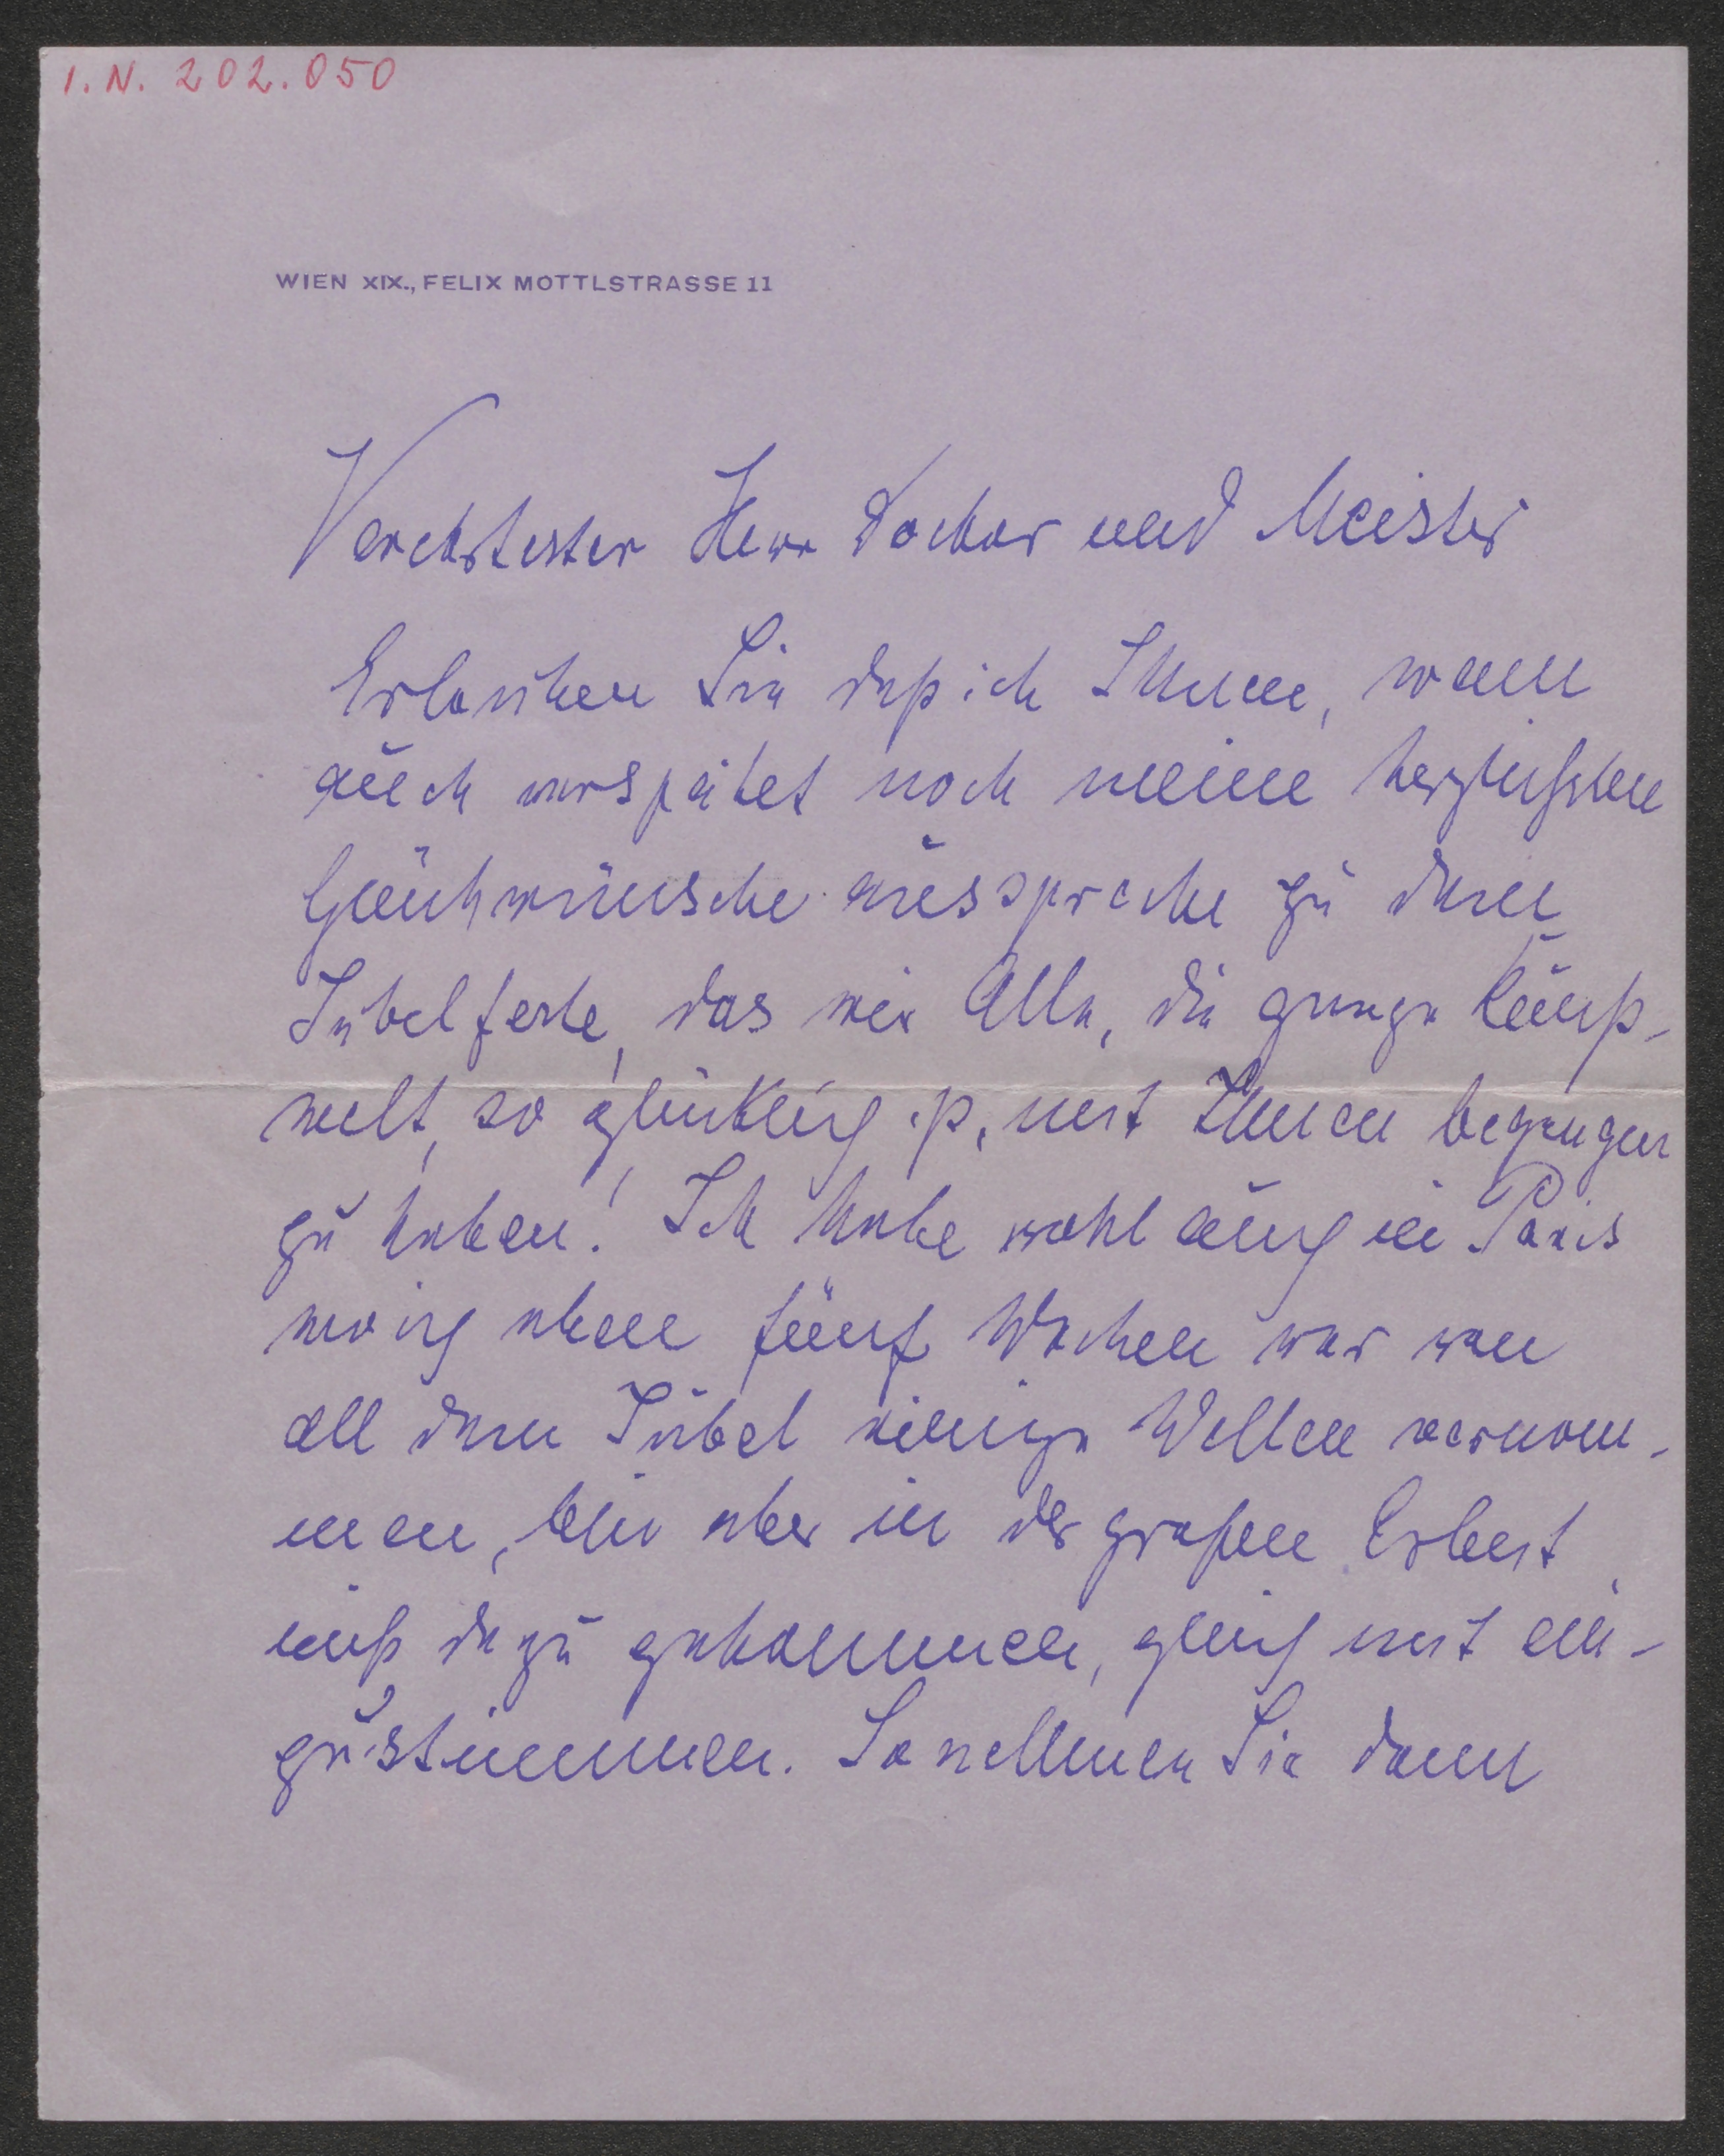 I.N. 202.050
WIEN XIX., FELIX MOTTLSTRASSE 11
Verehrtester Herr Doctor und Meister
Erlauben Sie daß ich Ihnen, wenn
auch verspätet noch meine herzlichsten
Glückwünsche ausspreche zu dem
Jubelfeste, das wir Alle, die ganze
welt, so glücklich s. mit Ihnen begangen
zu haben! Ich habe wohl auch in Paris
wo ich eben fünf Wochen war von
all dem Jubel einige Wellen vernom-
men, bin aber in der großen
nicht dazu gekommen, gleich mit ein-
zustimmen. So nehmen Sie denn